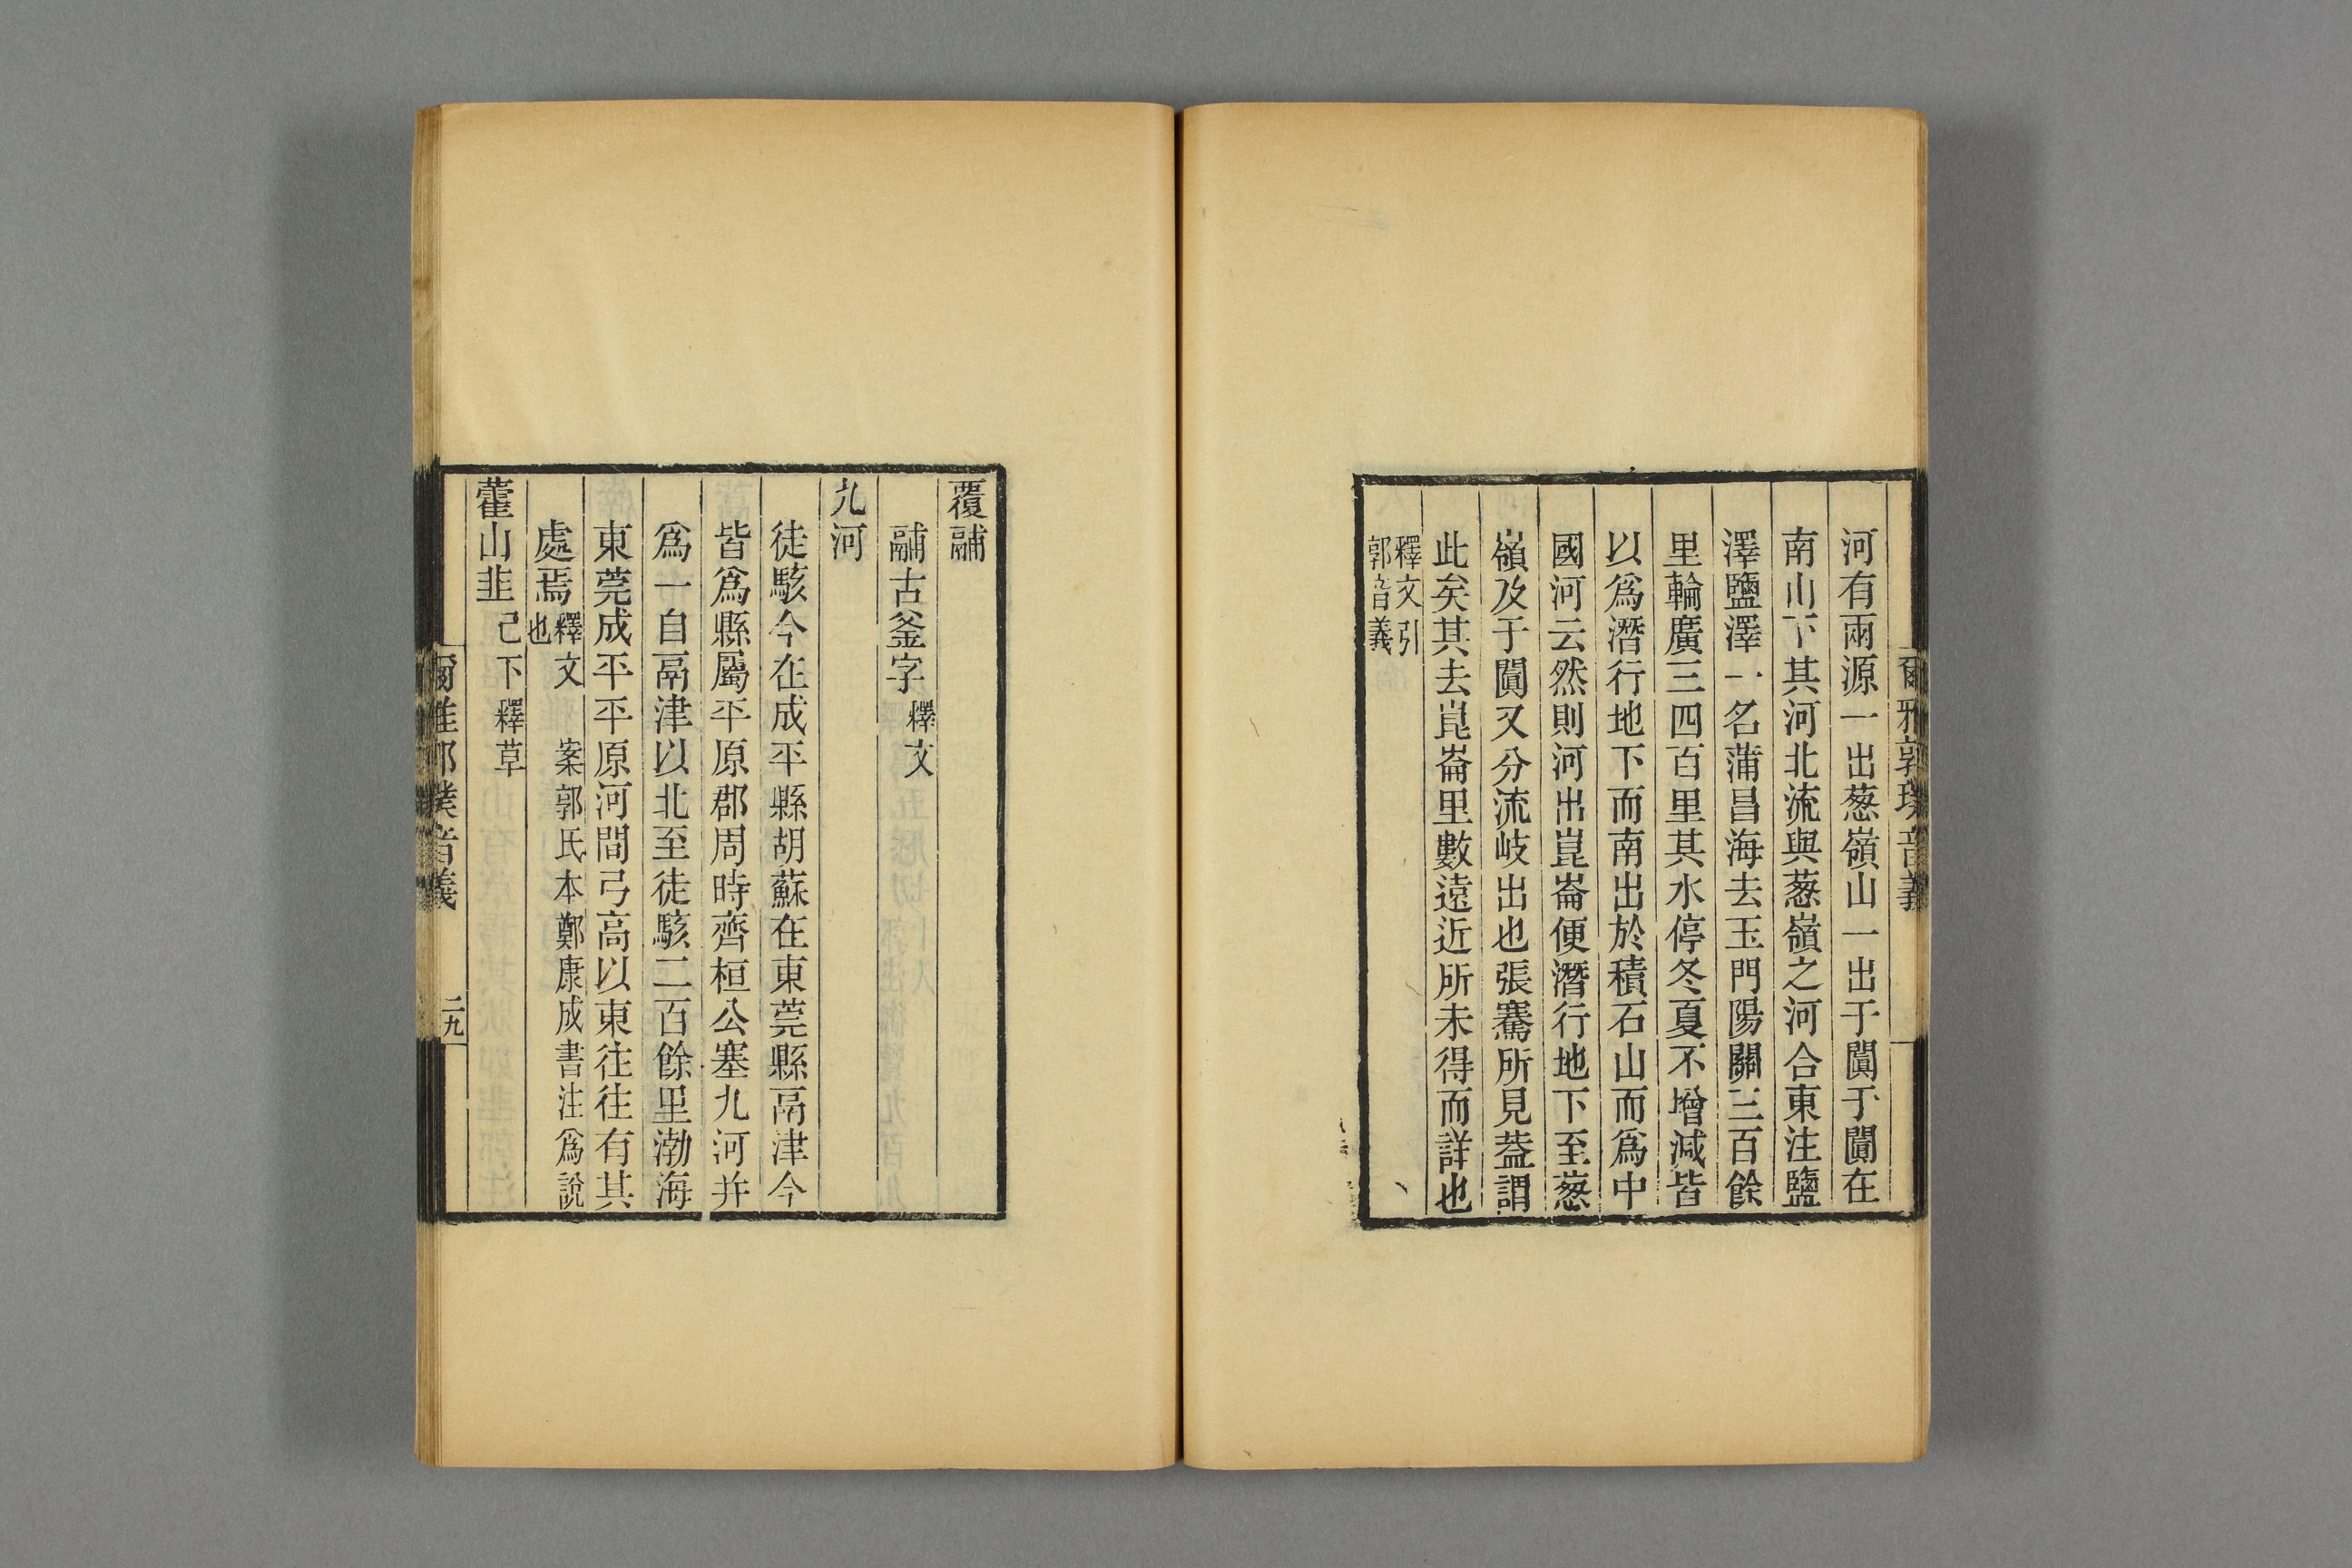 爾雅郭璞音義
河有兩源一出葱嶺山一出于闐于闐在
南山下其河北流與葱嶺之河合東注鹽
澤鹽澤一名蒲昌海去玉門陽關三百餘
里輪廣三四百里其水停冬夏不增減皆
以爲潛行地下而南出於積石山而爲中
國河云然則河出崑崙便潛行地下至葱
嶺及于闐又分流岐出也張騫所見葢謂
此矣其去崑崙里數遠近所未得而詳也
釋文引
郭音義
覆鬴
鬴古釜字釋文
九河
徒駭今在成平縣胡蘇在東莞縣鬲津今
皆爲縣屬平原郡周時齊桓公塞九河并
爲一自鬲津以北至徒駭二百餘里渤海
東莞成平平原河間弓高以東往往有其
處焉釋文 案郭氏本鄭康成書注爲說
也
藿山韭已下釋草
爾雅郭璞音義 二九